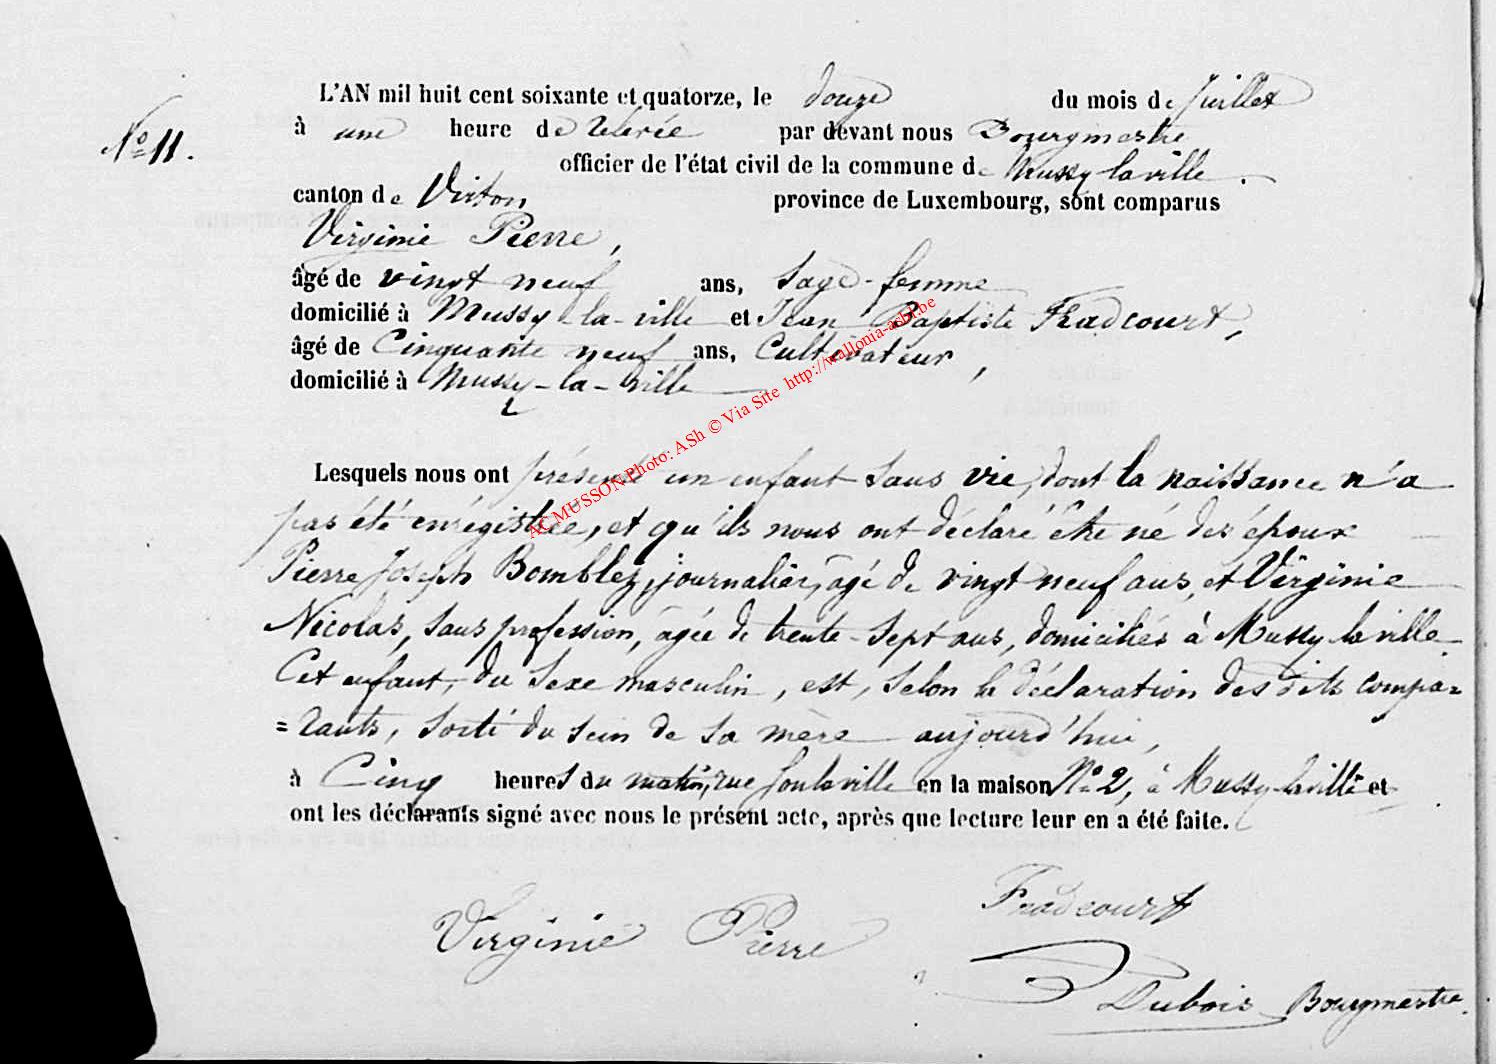 L'AN mil huit cent soixante et quatorze, le douze du mois de Juillet
No 11.
à une heure de relevée par devant nous Bourgmestre
officier de l'état civil de la commune de Mussy la ville.
canton de Virton province de Luxembourg, sont comparus
Virginie Pierre,
âgé de vingt neuf ans, Sage-femme
domicilié à Mussy-la-ville et Jean Baptiste Fradcourt,
âgé de Cinquante neuf ans, Cultivateur,
domicilié à Mussy-la-ville
ACMUSSON Photo: ASh © Via Site http://wallonia-asbl.be
Lesquels nous ont présenté un enfant sans vie, dont la naissance n'a
pas été enrégistrée, et qu'ils nous ont déclaré être né des époux
Pierre Joseph Bomblez, journalier, âgé de vingt neuf ans, et Virginie
Nicolas, sans profession, âgée de trente-sept ans, domiciliés à Mussy-la ville.
Cet enfant, du sexe masculin, est, selon la déclaration des dits compa=
=rants, sorti du sein de sa mère aujourd'hui,
à Cinq heures du matin, rue en la maison No 2, à Mussy-la ville et
ont les déclarants signé avec nous le présent acte, après que lecture leur en a été faite.
Fradcourt
Virginie Pierre
Dubois Bourgmestre.